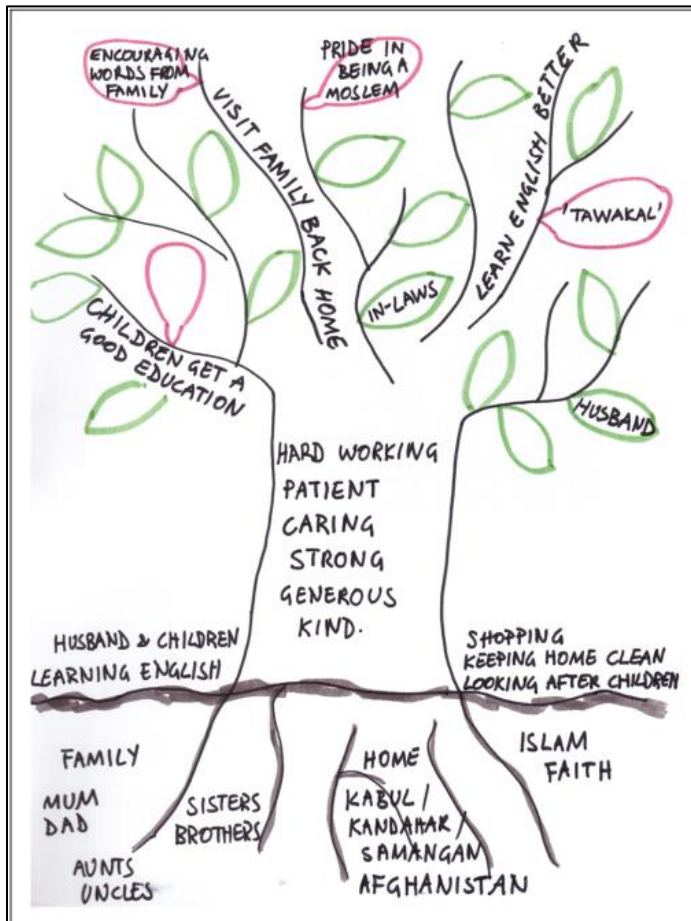 ENCOURAGING
WORDS FROM
FAMILY
VISIT FAMILY BACK HOME
PRIDE IN
BEING A
MOSLEM
LEARN ENGLISH BETTER
'TAWAKAL'
IN-LAWS
CHILDREN GET A
GOOD EDUCATION
HUSBAND
HARD WORKING
PATIENT
CARING
STRONG
GENEROUS
KIND.
HUSBAND & CHILDREN
LEARNING ENGLISH
SHOPPING
KEEPING HOME CLEAN
LOOKING AFTER CHILDREN
FAMILY
MUM
DAD
AUNTS
UNCLES
SISTERS
BROTHERS
HOME
KABUL/
KANDAHAR/
SAMANGAN
AFGHANISTAN
ISLAM
FAITH